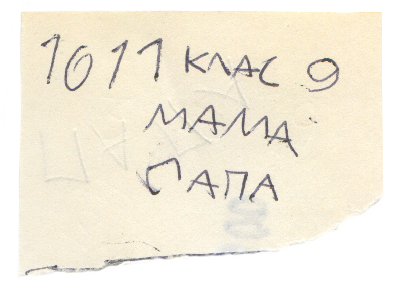 1011 КЛАС 9
МАМА
ПАПА